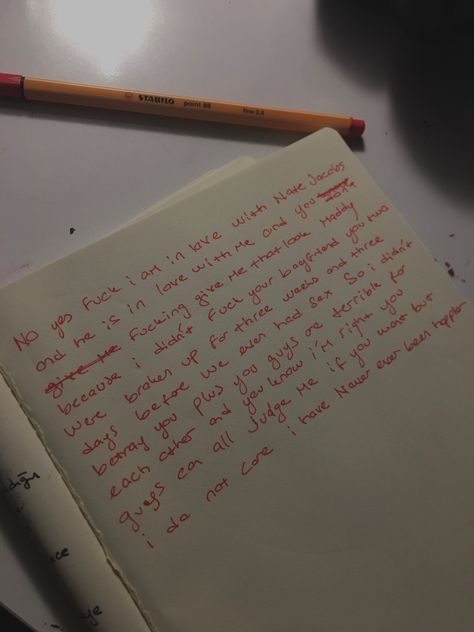 STABILO point 88 fine 0.4
No yes Fuck i am in love with Nate Jacobs
and he is in love with me and you don't
give me fucking give me that look Maddy
because i didn't fuck your boyfriend you two
were broken up for three weeks and three
days before we even had sex So i didn't
betray you plus you guys are terrible for
each other and you know i'm right you
guys can all Judge me if you want but
i do not care i have Never ever been happier